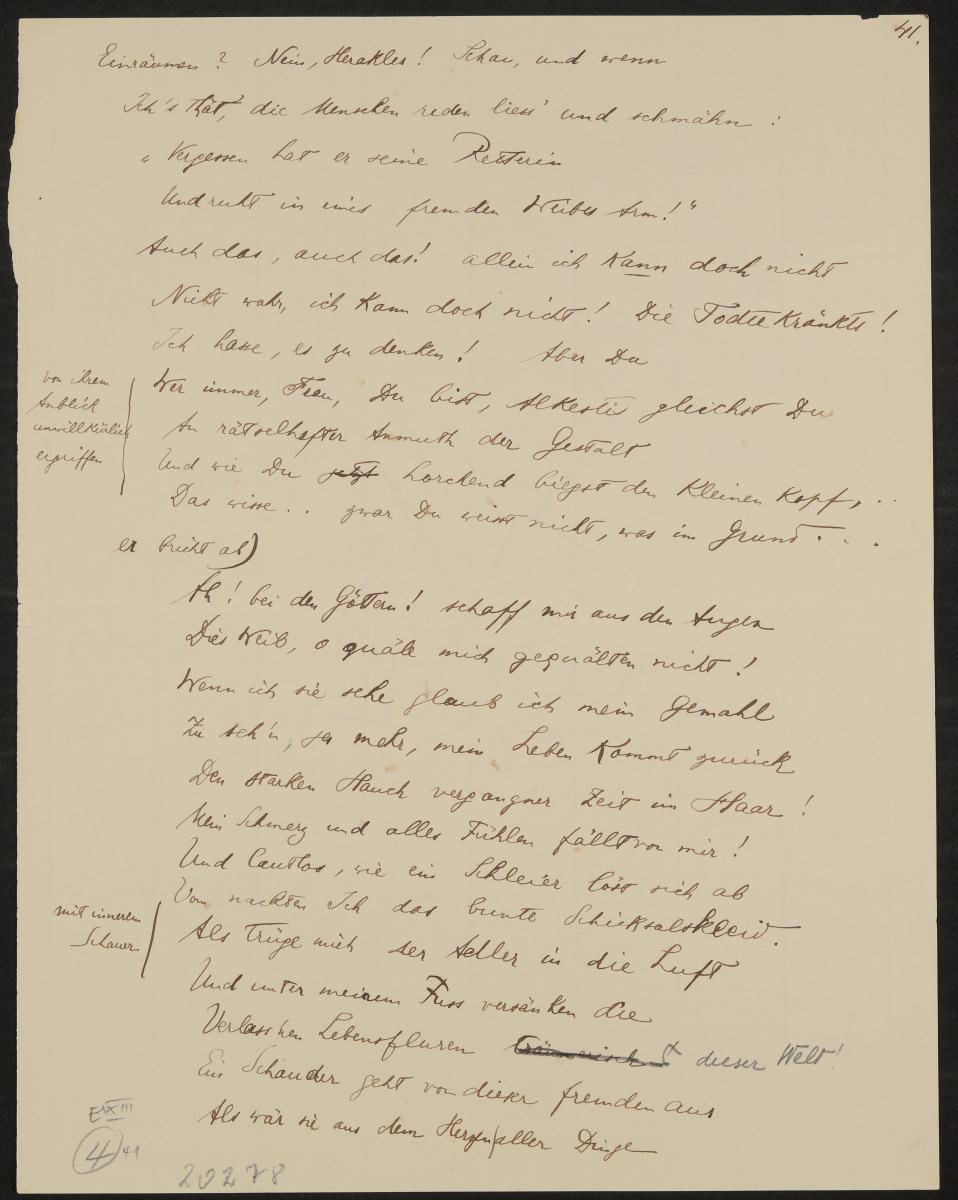 41.
Einräumen? Nein, Herakles! Schau, und wenn
Ich's thät', die Menschen reden liess' und schmähn:
„Vergessen hat er seine Retterin
Und ruht in eines fremden Weibes Arm!"
Auch das, auch das! allein ich kann doch nicht
Nicht wahr, ich kann doch nicht! Die Todte kränkts!
Ich hasse, es zu denken! Aber Du
von ihrem
Anblick
unwillkürlich
ergriffen
Wer immer, Frau, Du bist, Alkestis gleichst Du
An rätselhafter Anmuth der Gestalt
Und wie Du jetzt horchend biegst den kleinen Kopf, . .
Das wisse . . zwar Du weisst nicht, was im Grund . . .
er bricht ab)
Ah! bei den Göttern! schaff mir aus den Augen
Dies Weib, o quäle mich gequälten nicht!
Wenn ich sie sehe glaub ich mein Gemahl
Zu seh'n, ja mehr, mein Leben kommt zurück
Den starken Hauch vergangner Zeit im Haar!
Mein Schmerz und alles Fühlen fällt von mir!
Und lautlos, wie ein Schleier löst sich ab
Vom nackten Ich das bunte Schicksalskleid.
mit innerem
Schauer
Als trüge mich der Adler in die Luft
Und unter meinem Fuss versänken die
Verlass'nen Lebensfluren träumerisch dieser Welt!
Ein Schauder geht von dieser fremden aus
Als wär sie aus dem Herzen aller Dinge
4 41
20278